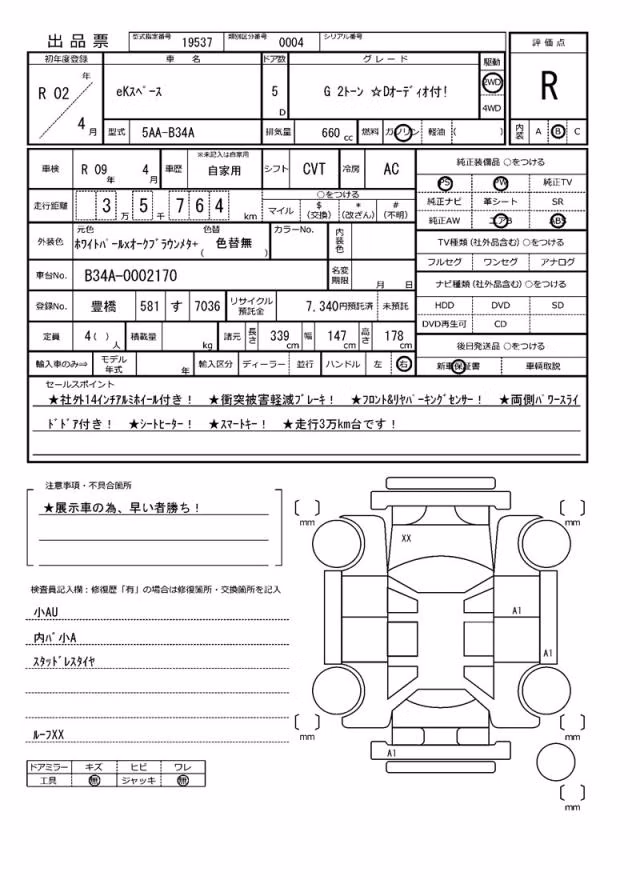 出品票 型式指定番号 19537 類別区分番号 0004 シリアル番号
評価点
R
内装 A B C
初年度登録 車名 ドア数 グレード 駆動
R 02 年 4 月
eKスペース 5 D G 2トーン ☆Dオーディオ付! 2WD 4WD
型式 5AA-B34A 排気量 660 cc 燃料 ガソリン 軽油 ( )
車検 R 09 年 4 月 車歴 ※未記入は自家用 自家用 シフト CVT 冷房 AC
純正装備品 ○をつける
PS PW 純正TV
純正ナビ 革シート SR
純正AW エアB ABS
走行距離 3 万 5 千 7 6 4 km ○をつける
マイル $(交換) *(改ざん) #(不明)
外装色 元色 ホワイトパールxオークブラウンメタ+ 色替 ( 色替無 ) カラーNo. 内装色
TV種類 (社外品含む) ○をつける
フルセグ ワンセグ アナログ
車台No. B34A-0002170 名変期限 月 日
ナビ種類 (社外品含む) ○をつける
HDD DVD SD
DVD再生可 CD
登録No. 豊橋 581 す 7036 リサイクル預託金 7,340円預託済 未預託
定員 4( ) 人 積載量 kg 諸元 長さ 339 cm 幅 147 cm 高さ 178 cm
後日発送品 ○をつける
新車保証書 車輌取説
輸入車のみ⇒ モデル年式 年 輸入区分 ディーラー 並行 ハンドル 左 右
セールスポイント
★社外14インチアルミホイール付き! ★衝突被害軽減ブレーキ! ★フロント&リヤパーキングセンサー! ★両側パワースライ
ドドア付き! ★シートヒーター! ★スマートキー! ★走行3万km台です!
注意事項・不具合箇所
★展示車の為、早い者勝ち!
検査員記入欄:修復歴「有」の場合は修復箇所・交換箇所を記入
小AU
内バ小A
スタッドレスタイヤ
ルーフXX
ドアミラー キズ ヒビ ワレ
工具 無 ジャッキ 無
mm
mm
XX
A1
A1
mm
mm
A1
mm